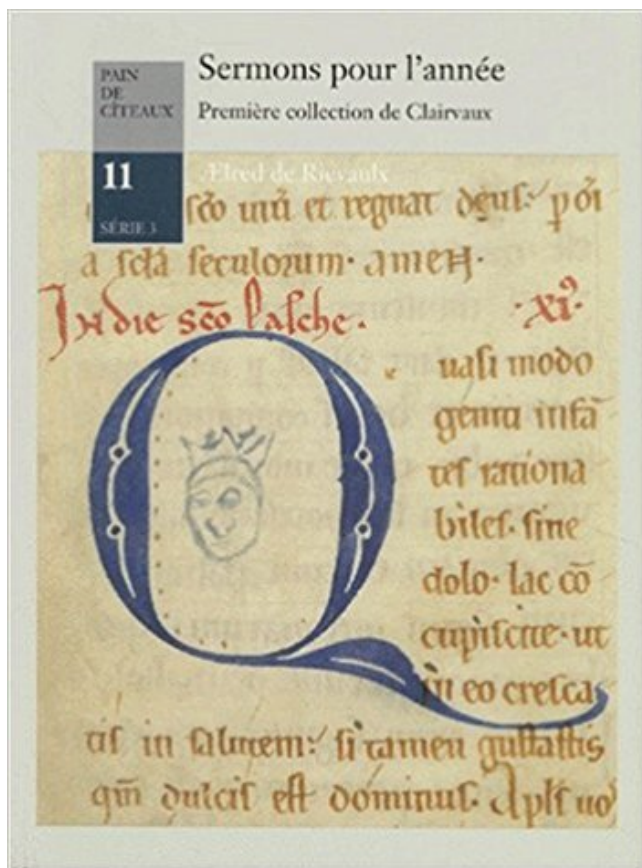 PAIN
DE
CÎTEAUX
11
SÉRIE 3
Sermons pour l'année
Première collection de Clairvaux
Ælred de Rievaulx
sc̄o uiu̅ et regnat deus: p o̅i
a sc̄la seculorum· amen·
In die sc̄o pasche. ·xi⁹·
Quasi modo
geniti infa̅
tes rationa
biles· sine
dolo· lac co̅
cupiscite· ut
in eo cresca
tis in salutem: si tamen gustastis
qm̅ dulcis est dominus· Apl̅s uo